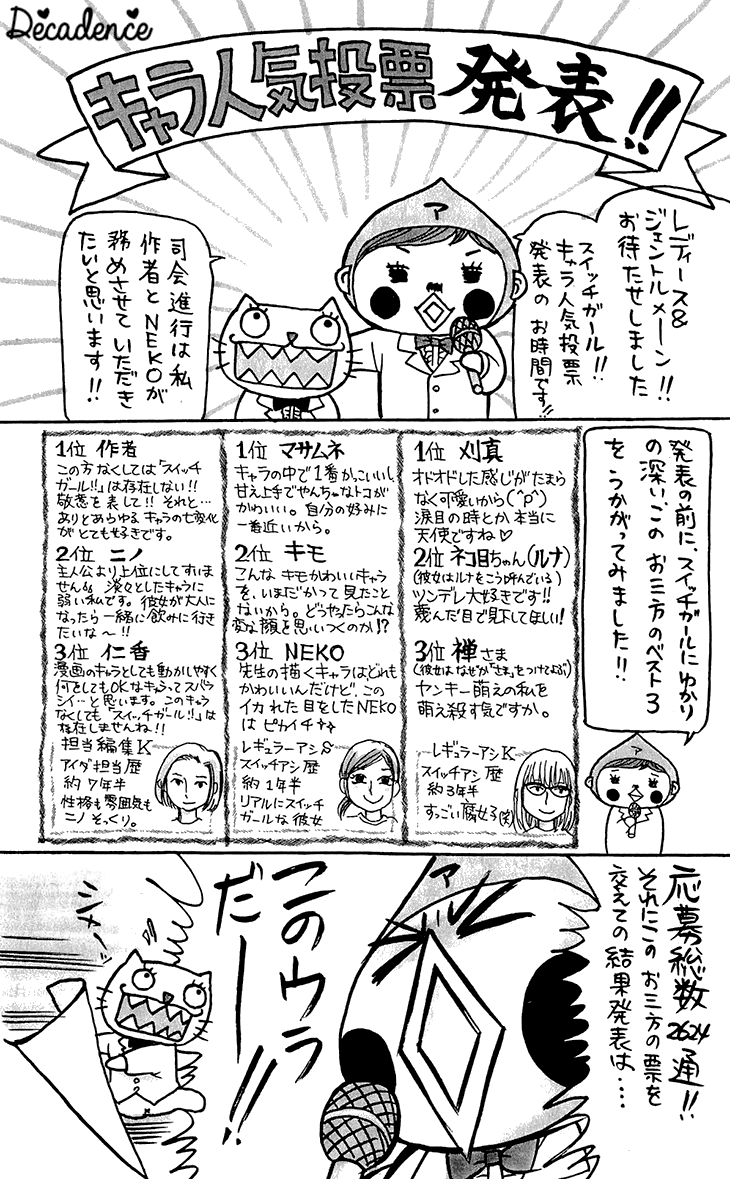 Decadence
キャラ人気投票 発表!!
レディース&
ジェントルメーン!!
お待たせしました
スイッチガール!!
キャラ人気投票
発表の お時間です!!
司会進行は私
作者とNEKOが
務めさせていただき
たいと思います!!
発表の前に、スイッチガールにゆかり
の深いこの お三方のベスト3
を うかがってみました!!
1位 刈真
オドオドした感じがたまら
なく可愛いから(^p^)
涙目の時とか、本当に
天使ですね♡
2位 ネコ目ちゃん(ルナ)
(彼女はルナをこう呼んでいる)
ツンデレ大好きです!!
蔑んだ目で見下してほしい!
3位 禅さま
(彼女はなぜか「さま」をつけてよぶ)
ヤンキー萌えの私を
萌え殺す気ですか。
レギュラーアシK
スイッチアシ歴
約3年半
すっごい腐女子(笑)
1位 マサムネ
キャラの中で1番かっこいいし、
甘え上手でやんちゃなトコが
かわいい。自分の好みに
一番近いから。
2位 キモ
こんなキモかわいいキャラ
を、いまだかつて見たこと
ないから。どうやったらこんな
変な顔を思いつくのか!?
3位 NEKO
先生の描くキャラはどれも
かわいいんだけど、この
イカれた目をしたNEKO
は ピカイチ
レギュラーアシS
スイッチアシ歴
約1年半
リアルにスイッチ
ガールな彼女
1位 作者
この方なくしては「スイッチ
ガール!!」は存在しない!!
敬意を表して!! それと…
ありとあらゆるキャラの七変化
がとても好きです。
2位 ニノ
主人公より上位にしてすいま
せん 淡々としたキャラに
弱い私です。彼女が大人に
なったら一緒に飲みに行き
たいな〜!!
3位 仁香
漫画のキャラとしても動かしやすく
何をしてもOKなキャラってスバラ
シイ…と思います。このキャラ
なくしても「スイッチガール!!」は
存在しませんね!!
担当編集K
アイダ担当歴
約7年半
性格も雰囲気も
ニノ そっくり。
応募総数2624通!!
それにこの お三方の票を
交えての 結果発表は‥‥
ア
このウラ
だーー!!